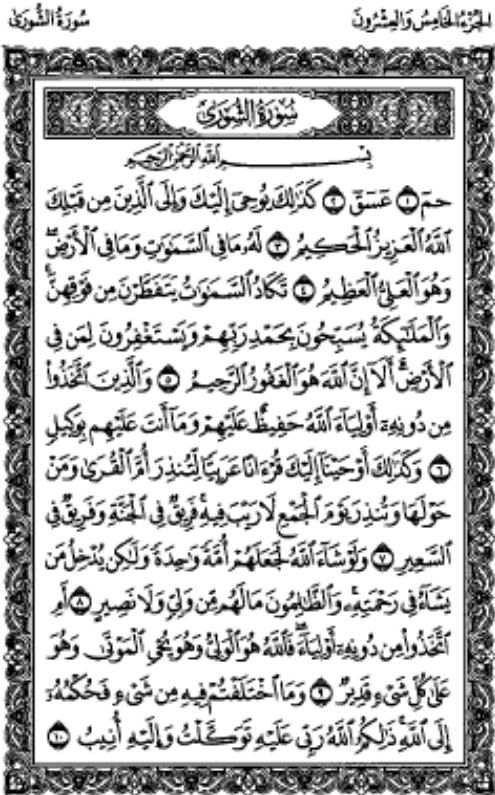 الجزء الخامس والعشرون
سورة الشورى
سُورَةُ الشُّورَىٰ
بِسْمِ اللَّهِ الرَّحْمَٰنِ الرَّحِيمِ
حمٓ ١ عٓسٓقٓ ٢ كَذَٰلِكَ يُوحِىٓ إِلَيْكَ وَإِلَى ٱلَّذِينَ مِن قَبْلِكَ
ٱللَّهُ ٱلْعَزِيزُ ٱلْحَكِيمُ ٣ لَهُۥ مَا فِى ٱلسَّمَٰوَٰتِ وَمَا فِى ٱلْأَرْضِۖ
وَهُوَ ٱلْعَلِىُّ ٱلْعَظِيمُ ٤ تَكَادُ ٱلسَّمَٰوَٰتُ يَتَفَطَّرْنَ مِن فَوْقِهِنَّۚ
وَٱلْمَلَٰٓئِكَةُ يُسَبِّحُونَ بِحَمْدِ رَبِّهِمْ وَيَسْتَغْفِرُونَ لِمَن فِى
ٱلْأَرْضِۗ أَلَآ إِنَّ ٱللَّهَ هُوَ ٱلْغَفُورُ ٱلرَّحِيمُ ٥ وَٱلَّذِينَ ٱتَّخَذُوا۟
مِن دُونِهِۦٓ أَوْلِيَآءَ ٱللَّهُ حَفِيظٌ عَلَيْهِمْ وَمَآ أَنتَ عَلَيْهِم بِوَكِيلٍ
٦ وَكَذَٰلِكَ أَوْحَيْنَآ إِلَيْكَ قُرْءَانًا عَرَبِيًّا لِّتُنذِرَ أُمَّ ٱلْقُرَىٰ وَمَنْ
حَوْلَهَا وَتُنذِرَ يَوْمَ ٱلْجَمْعِ لَا رَيْبَ فِيهِۚ فَرِيقٌ فِى ٱلْجَنَّةِ وَفَرِيقٌ فِى
ٱلسَّعِيرِ ٧ وَلَوْ شَآءَ ٱللَّهُ لَجَعَلَهُمْ أُمَّةً وَٰحِدَةً وَلَٰكِن يُدْخِلُ مَن
يَشَآءُ فِى رَحْمَتِهِۦۚ وَٱلظَّٰلِمُونَ مَا لَهُم مِّن وَلِىٍّ وَلَا نَصِيرٍ ٨ أَمِ
ٱتَّخَذُوا۟ مِن دُونِهِۦٓ أَوْلِيَآءَۖ فَٱللَّهُ هُوَ ٱلْوَلِىُّ وَهُوَ يُحْىِ ٱلْمَوْتَىٰ وَهُوَ
عَلَىٰ كُلِّ شَىْءٍ قَدِيرٌ ٩ وَمَا ٱخْتَلَفْتُمْ فِيهِ مِن شَىْءٍ فَحُكْمُهُۥٓ
إِلَى ٱللَّهِۚ ذَٰلِكُمُ ٱللَّهُ رَبِّى عَلَيْهِ تَوَكَّلْتُ وَإِلَيْهِ أُنِيبُ ١٠